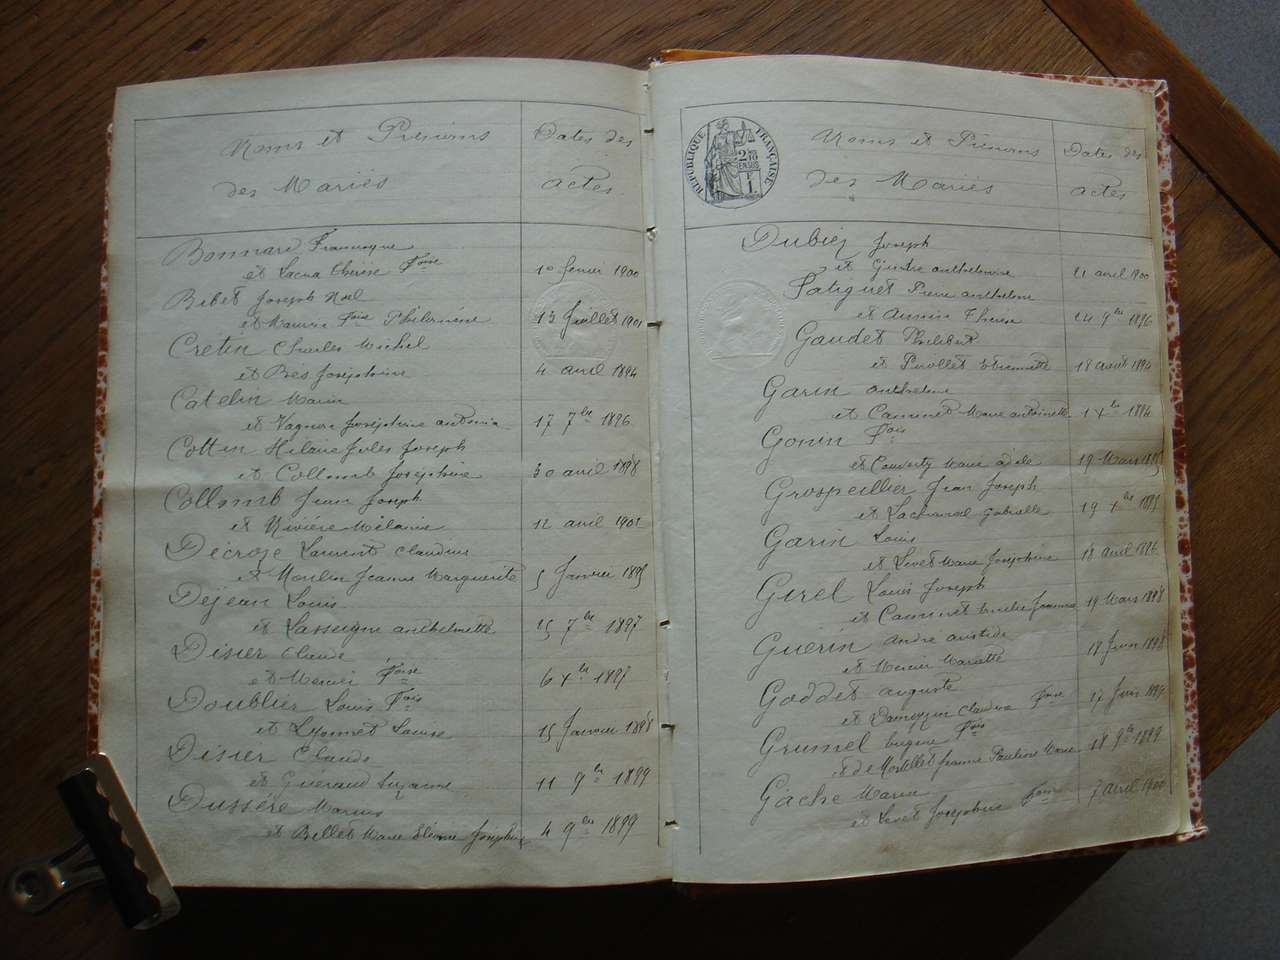 Noms et Prénoms
des Mariés
Dates des
actes
Bonnard
et Thérèse Foise
10 février 1900
Bibet Joseph Noel
et Foise Philomène
13 Juillet 1901
Cretin Charles Michel
et Bes Joséphine
4 avril 1894
Catelin Marin
et Vagnon Joséphine antonia
17 7bre 1896
Cottin Hilaire Jules Joseph
et Collomb Joséphine
30 avril 1898
Collomb Jean Joseph
et Rivière Mélanie
12 avril 1901
Décroze Laurent Claudius
et Moulin Jeanne Marguerite
5 Janvier 1895
Dejean Louis
et Lasseigne anthelmette
15 7bre 1897
Disier Claude
et Mercier Foise
6 Xbre 1897
Doublier Louis Fois
et Lyonnet Louise
15 Janvier 1898
Disier Claude
et Guéraud Suzanne
11 9bre 1899
Dussère Marius
et Billet Marie Joséphine
4 9bre 1899
RÉPUBLIQUE FRANÇAISE
Noms et Prénoms
des Mariés
Dates des
actes
Dubiez Joseph
et anthelmine
21 avril 1900
Pierre anthelme
et Thérèse
24 9bre 1896
Gaudet Philibert
et Pérollet Etiennette
18 août 1894
Garin anthelme
et Marie antoinette
1 Xbre 1894
Gonin Fois
et Marie adèle
19 Mars 1895
Grospeillier Jean Joseph
et Gabrielle
19 Xbre 1895
Garin Louis
et Livet Marie Joséphine
18 avril 1896
Girel Louis Joseph
et Jeanne
19 Mars 1898
Guérin andré aristide
et Mercier Mariette
1898
Goddet auguste
et Claudia Foise
17 Juin 1899
Grumel Eugène Fois
et de Mortillet Jeanne Pauline Marie
18 9bre 1899
Gâche Marin
et Livet Joséphine Foise
7 avril 1900